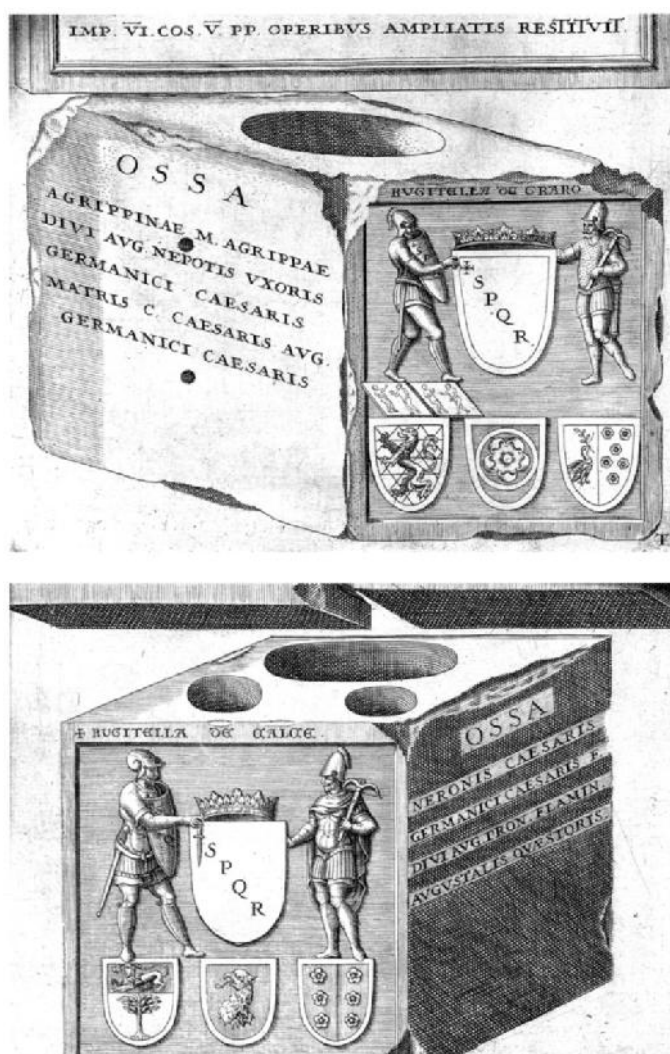 IMP. V̅I̅. COS. V̅. PP. OPERIBVS AMPLIATIS RESTITVIT.
OSSA
AGRIPPINAE M. AGRIPPAE
DIVI AVG. NEPOTIS VXORIS
GERMANICI CAESARIS
MATRIS C. CAESARIS AVG.
GERMANICI CAESARIS
RVGITELLA DE GRARO
S
P
Q
R
✠ RVGITELLA DE CALCE.
S
P
Q
R
OSSA
NERONIS CAESARIS
GERMANICI CAESARIS F.
DIVI AVG. PRON. FLAMIN.
AVGVSTALIS QVÆSTORIS.